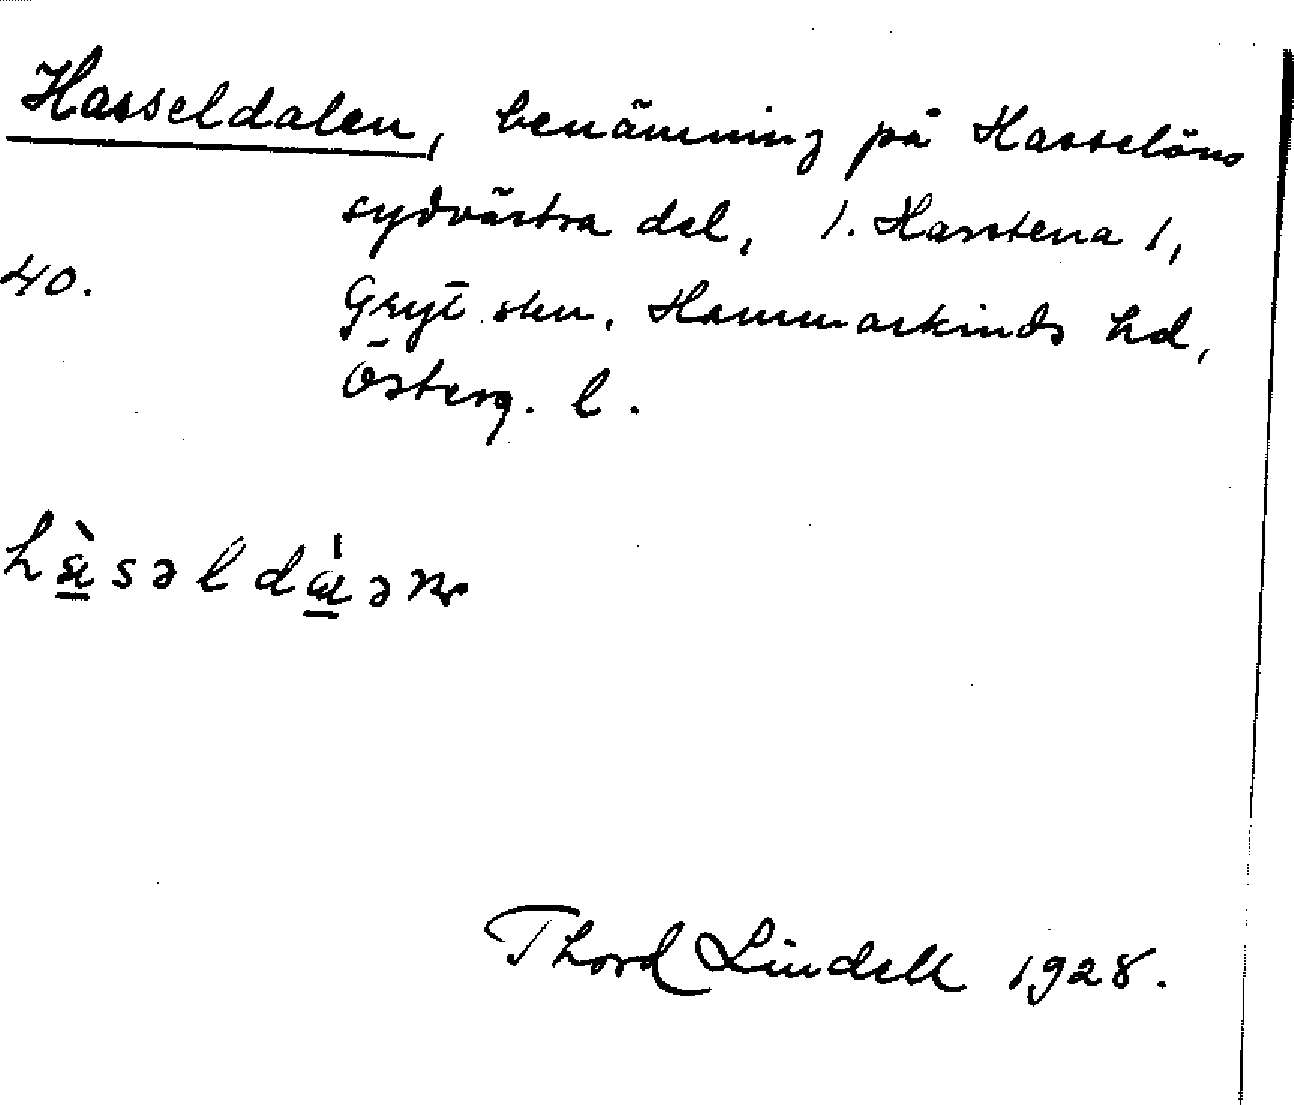 Hasseldalen, benämning på Hasselöns
sydvästra del, 1. Harstena 1,
40.
Gryt skn, Hammarkinds hd,
Österg. l.
Thord Lindell 1928.